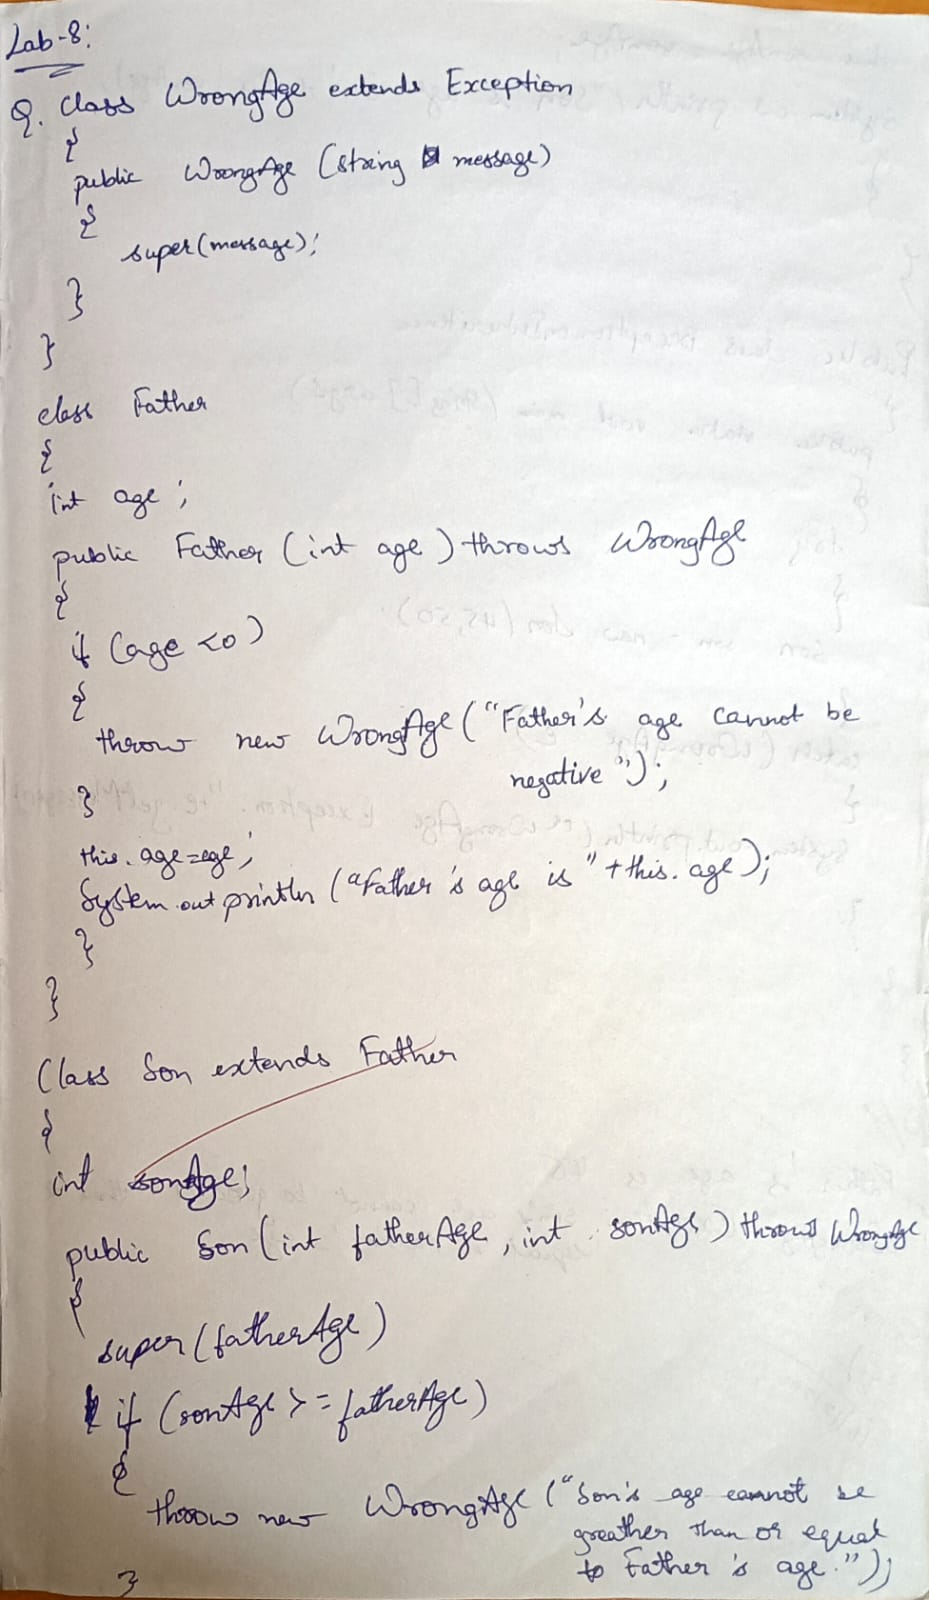 Lab-8:
Q. Class WrongAge extends Exception
{
public WrongAge (string message)
{
super(message);
}
}
class Father
{
int age;
public Father (int age) throws WrongAge
{
if (age <0)
{
throw new WrongAge ("Father's age cannot be
negative");
}
this.age=age;
System.out println ("Father's age is "+this.age);
}
}
Class Son extends Father
{
int sonAge;
public Son (int fatherAge, int sonAge) throws WrongAge
{
super(fatherAge)
if (sonAge >= fatherAge)
{
throw new WrongAge ("Son's age cannot be
greather than or equal
to Father's age.");
}